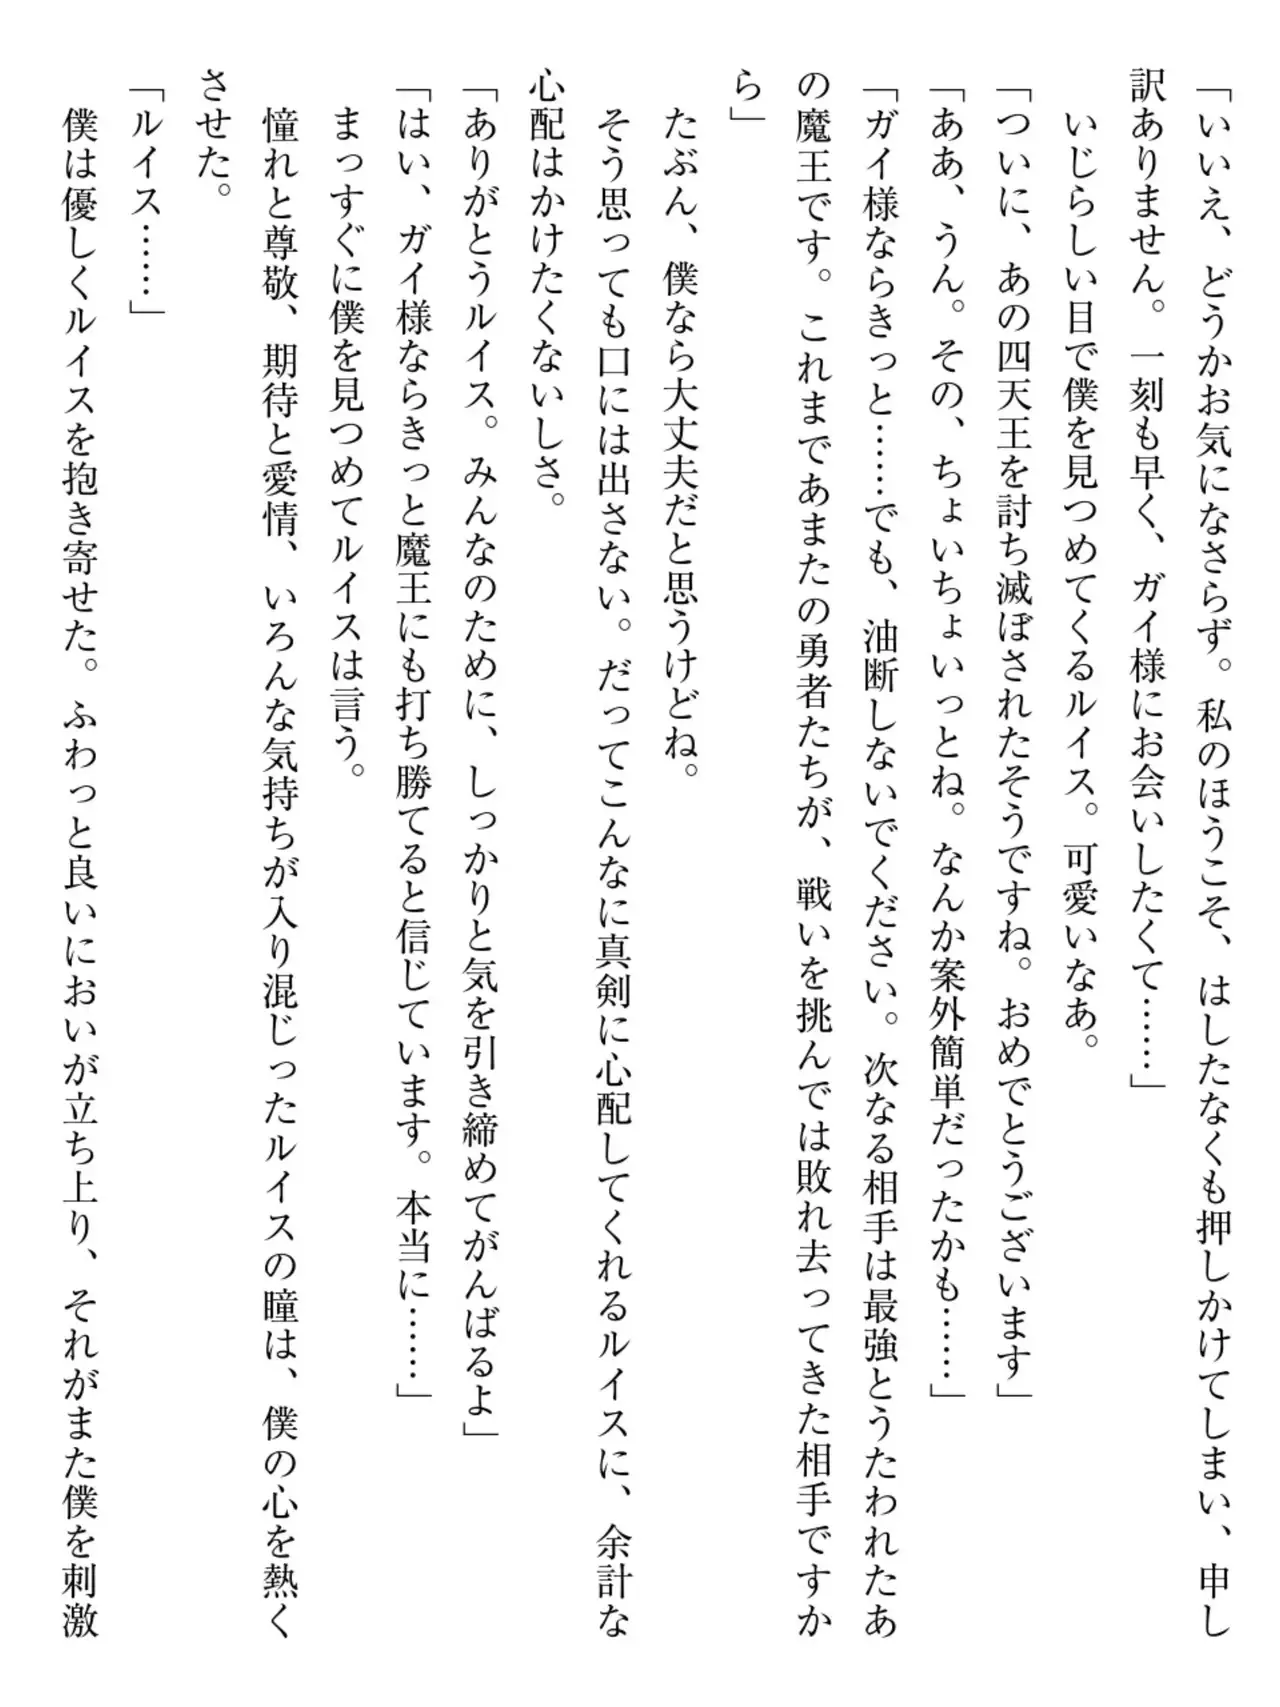 「いいえ、どうかお気になさらず。私のほうこそ、はしたなくも押しかけてしまい、申し
訳ありません。一刻も早く、ガイ様にお会いしたくて……」
いじらしい目で僕を見つめてくるルイス。可愛いなあ。
「ついに、あの四天王を討ち滅ぼされたそうですね。おめでとうございます」
「ああ、うん。その、ちょいちょいっとね。なんか案外簡単だったかも……」
「ガイ様ならきっと……でも、油断しないでください。次なる相手は最強とうたわれたあ
の魔王です。これまであまたの勇者たちが、戦いを挑んでは敗れ去ってきた相手ですか
ら」
たぶん、僕なら大丈夫だと思うけどね。
そう思っても口には出さない。だってこんなに真剣に心配してくれるルイスに、余計な
心配はかけたくないしさ。
「ありがとうルイス。みんなのために、しっかりと気を引き締めてがんばるよ」
「はい、ガイ様ならきっと魔王にも打ち勝てると信じています。本当に……」
まっすぐに僕を見つめてルイスは言う。
憧れと尊敬、期待と愛情、いろんな気持ちが入り混じったルイスの瞳は、僕の心を熱く
させた。
「ルイス……」
僕は優しくルイスを抱き寄せた。ふわっと良いにおいが立ち上り、それがまた僕を刺激